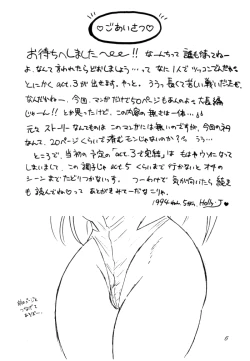 ♡ごあいさつ♡
お待ちへしました へee!! なーんちって 誰も待ってねー
よ、なんて言われたらどおしましょう…って なに1人でツッコンでんだかな
とにかく act.3 が出ます。やっと。ううっ長くて苦しい戦いだったぜ。
なんだかねー、今回、マンガだけで50ページもあんのよっ大長編
じゃーん!! とか思ったけど、この内容の無さは一体…。
元々 ストーリーなんてものは このマンガには無いのですが、今回の
なんて、20ページくらいで済むモンじゃないのか？ ううっ…
ところで、当初の予定の「act.3で完結」は もはやウソになって
しまいまして、この調子じゃ act.5 くらいまで行かないと オチの
シーンまでたどりつかないっす。 つーわけで 気が向いたら続き
も 読んでね♡って あとがきみてーだなこりゃ。
1994 Holly-J ♥
6